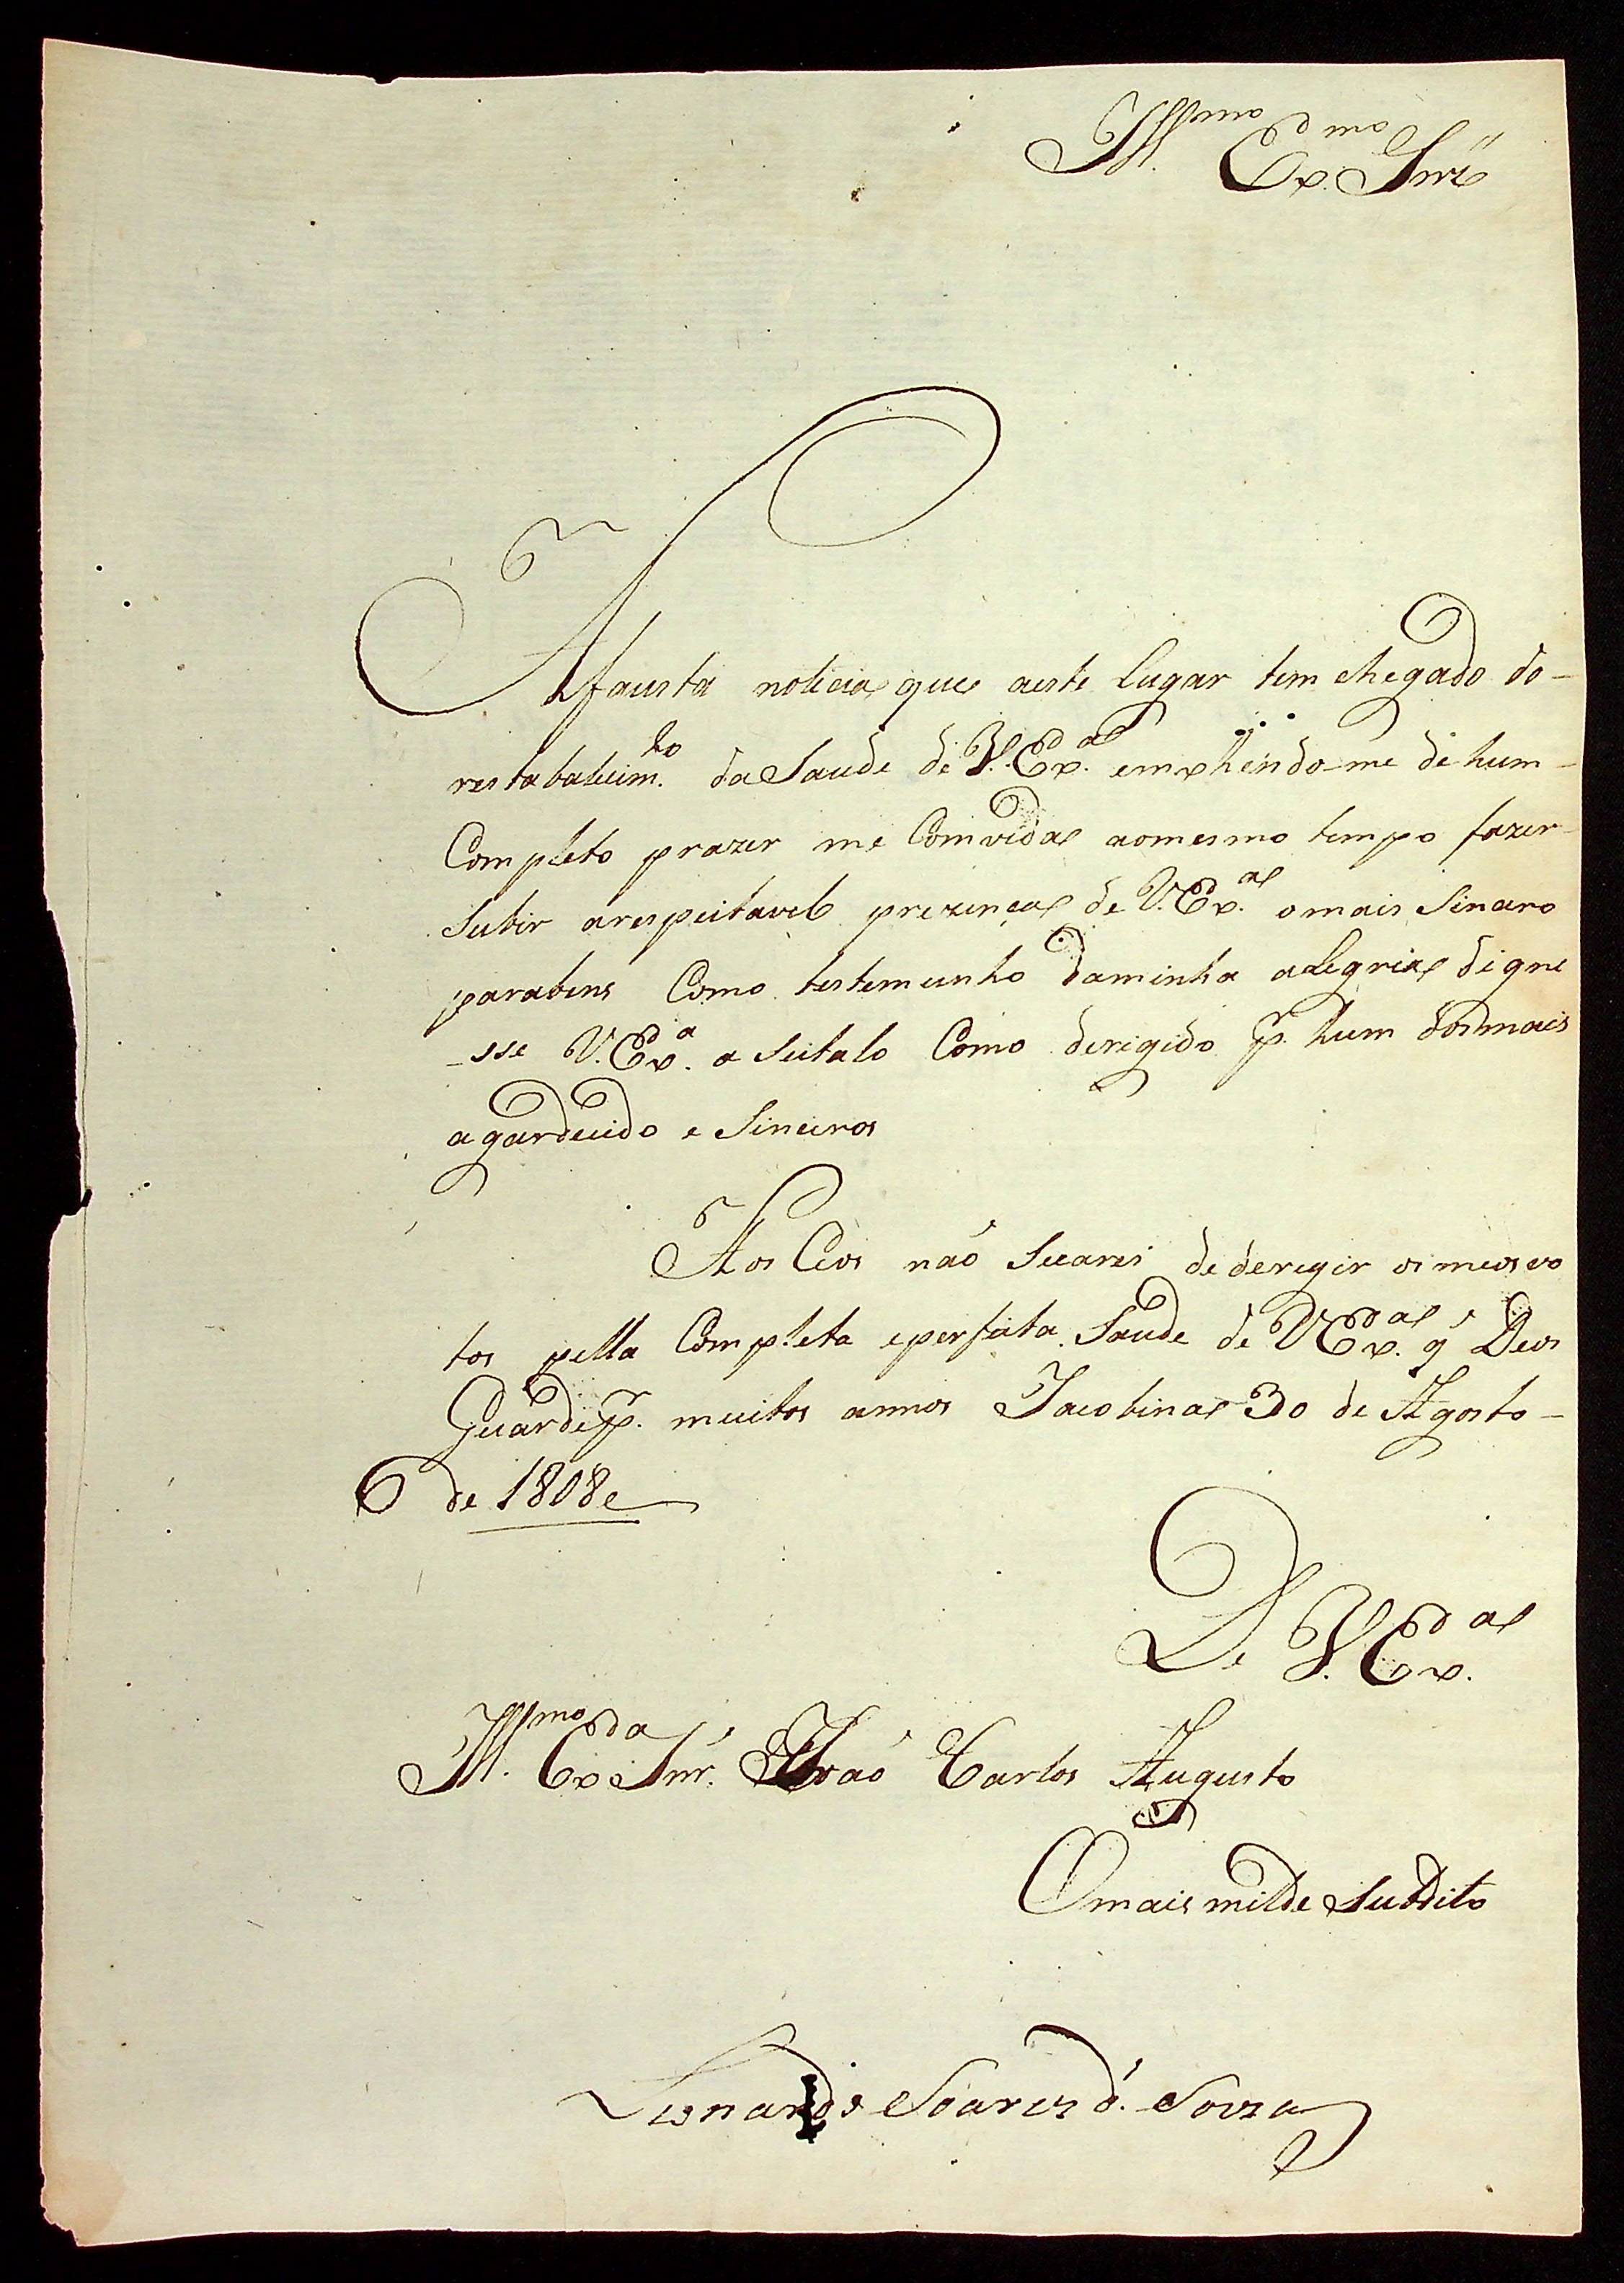 Ill.mo Ex.mo Snr̃
A fausta noticia que aeste Lugar tem chegado do-
restabalecim.to da Saude de V. Ex.a emxhendo-me de hum-
Completo prazer me Comvida aomesmo tempo fazer-
Subir arespeitavel prezença de V. Ex.a omais Sincero
parabens Como testemunho daminha alegria digne
-sse V. Ex.a a Seitalo Como derigido p.r hum dosmais
agardecido e Sinceros
Aos Ceos naõ Secarei de deregir os meos vo
tos pella Completa eperfeita Saude de V Ex.a q' Deos
Guarde p.r muitos annos Jacobina 30 de Agosto-
de 1808
De V. Ex.a
Ill.mo Ex.a Snr. Joaõ Carlos Augusto
O mais milde Subdito
Leonardo Soares d'. Souza